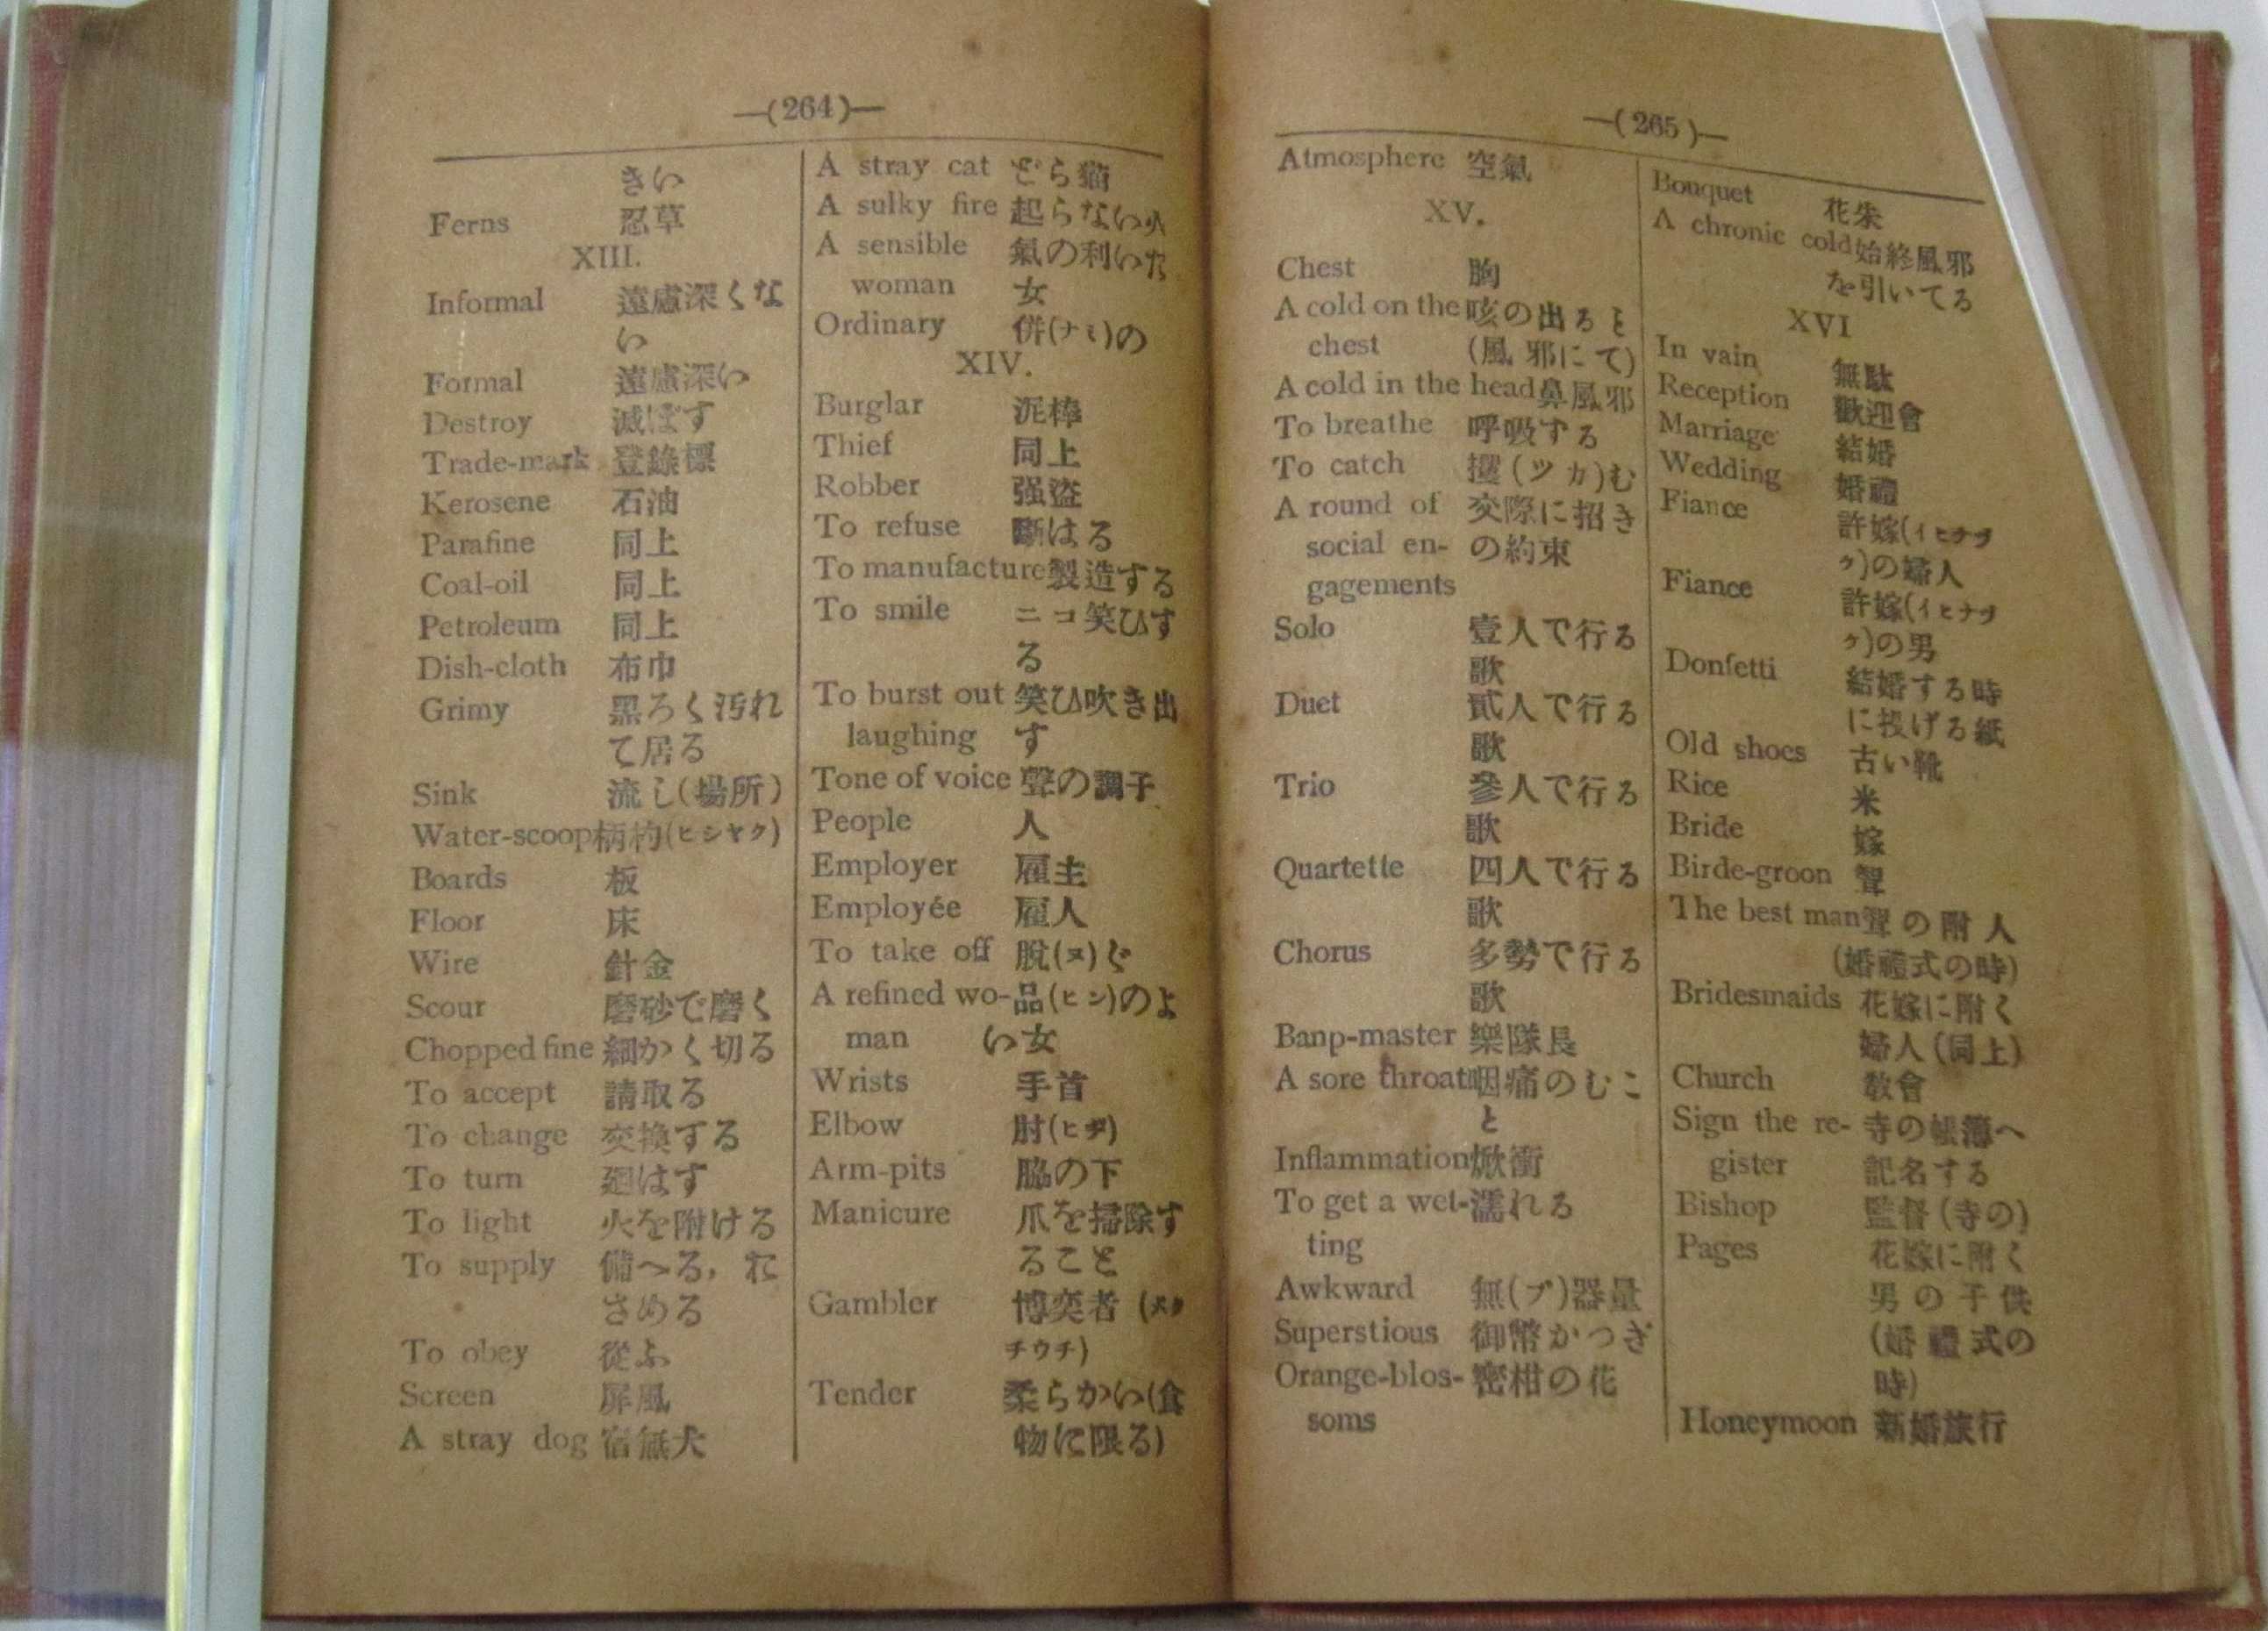 —(264)—
きい
Ferns 忍草
XIII.
Informal 遠慮深くな
い
Formal 遠慮深い
Destroy 滅ぼす
Trade-mark 登錄標
Kerosene 石油
Parafine 同上
Coal-oil 同上
Petroleum 同上
Dish-cloth 布巾
Grimy 黑ろく汚れ
て居る
Sink 流し(場所)
Water-scoop 柄杓(ヒシヤク)
Boards 板
Floor 床
Wire 針金
Scour 磨砂で磨く
Chopped fine 細かく切る
To accept 請取る
To change 交換する
To turn 廻はす
To light 火を附ける
To supply 備へる，
さめる
To obey 從ふ
Screen 屏風
A stray dog 宿無犬
A stray cat どら猫
A sulky fire 起らない火
A sensible 氣の利いた
woman 女
Ordinary 併(ナミ)の
XIV.
Burglar 泥棒
Thief 同上
Robber 强盜
To refuse 斷はる
To manufacture 製造する
To smile ニコ笑ひす
る
To burst out 笑ひ吹き出
laughing す
Tone of voice 聲の調子
People 人
Employer 雇主
Employée 雇人
To take off 脫(ヌ)ぐ
A refined wo- 品(ヒン)のよ
man い女
Wrists 手首
Elbow 肘(ヒヂ)
Arm-pits 脇の下
Manicure 爪を掃除す
ること
Gambler 博奕者
チウチ)
Tender 柔らかい(食
物に限る)
—(265)—
Atmosphere 空氣
XV.
Chest 胸
A cold on the 咳の出ると
chest (風邪にて)
A cold in the head 鼻風邪
To breathe 呼吸する
To catch 攫(ツカ)む
A round of 交際に招き
social en- の約束
gagements
Solo 壹人で行る
歌
Duet 貳人で行る
歌
Trio 參人で行る
歌
Quartette 四人で行る
歌
Chorus 多勢で行る
歌
Banp-master 樂隊長
A sore throat 咽痛のむこ
と
Inflammation 焮衝
To get a wet- 濡れる
ting
Awkward 無(ブ)器量
Superstious 御幣かつぎ
Orange-blos- 密柑の花
soms
Bouquet 花朱
A chronic cold 始終風邪
を引いてる
XVI
In vain 無駄
Reception 歡迎會
Marriage 結婚
Wedding 婚禮
Fiance 許嫁(イヒナヅ
ク)の婦人
Fiance 許嫁(イヒナヅ
ク)の男
Donfetti 結婚する時
に投げる紙
Old shoes 古い靴
Rice 米
Bride 嫁
Birde-groon 聟
The best man 聟の附人
(婚禮式の時)
Bridesmaids 花嫁に附く
婦人(同上)
Church 敎會
Sign the re- 寺の帳簿へ
gister 記名する
Bishop 監督(寺の)
Pages 花嫁に附く
男の子供
(婚禮式の
時)
Honeymoon 新婚旅行